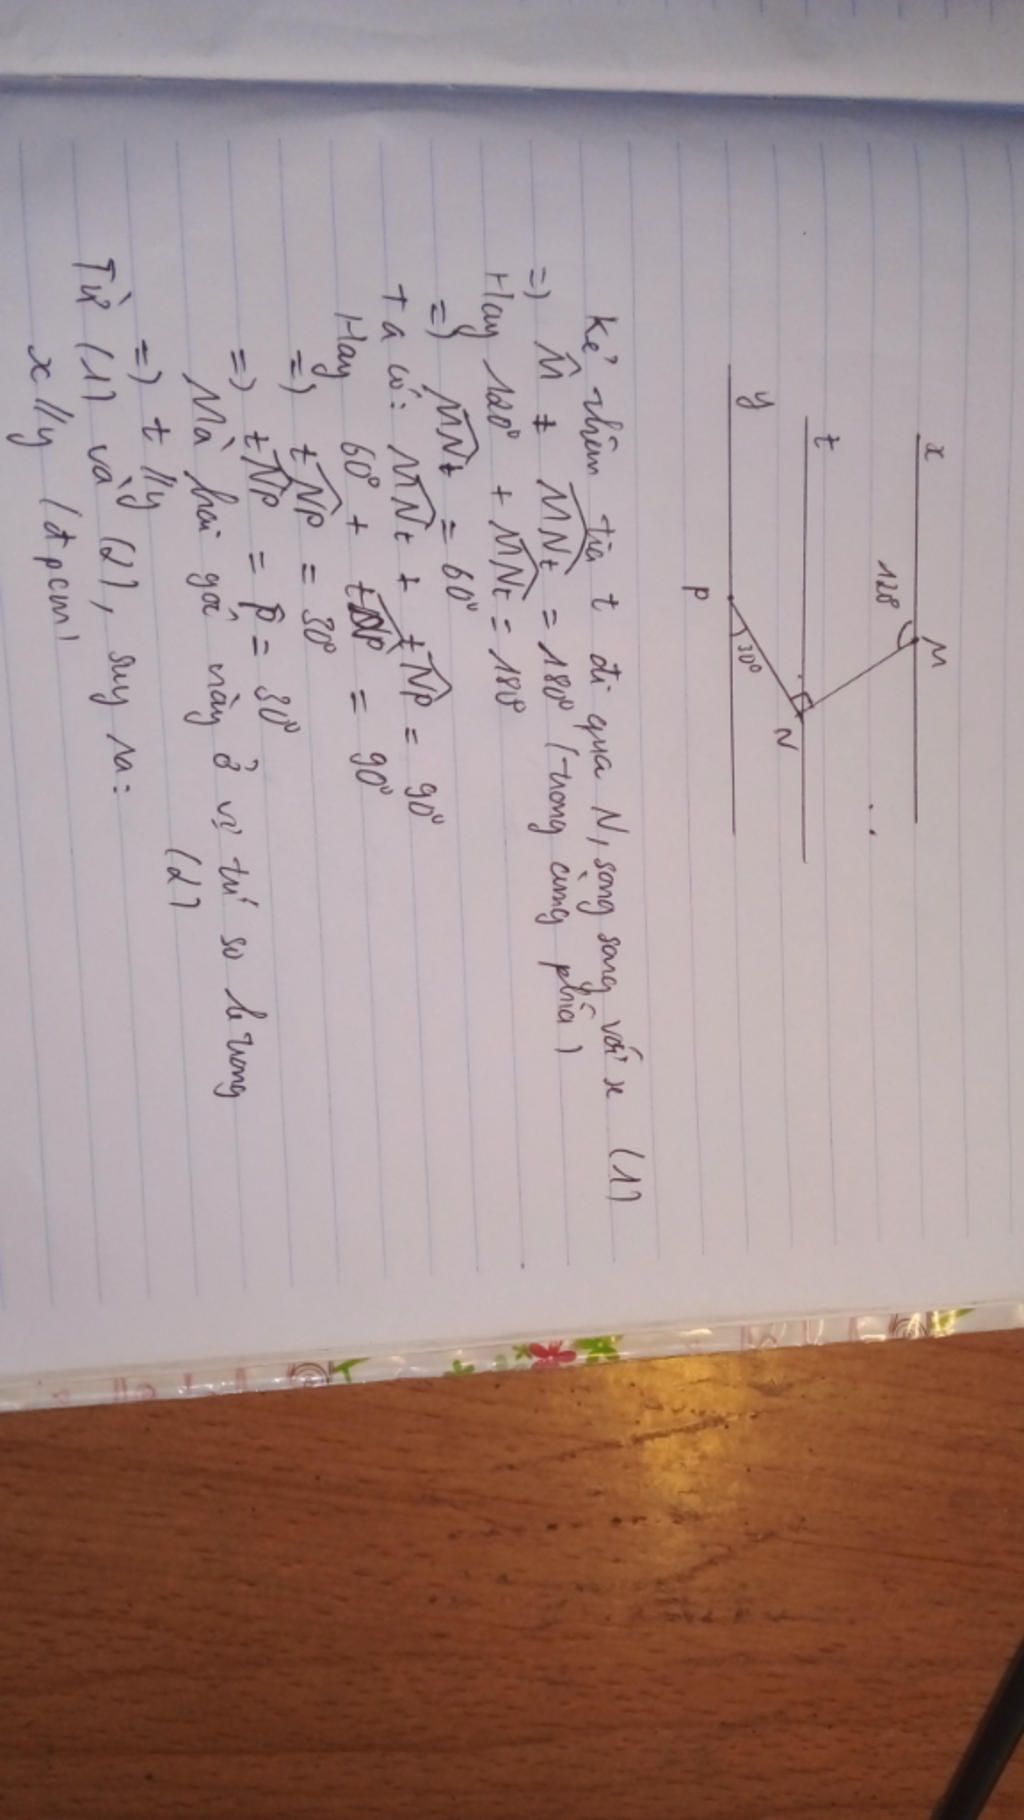 x
M
120°
t
N
y
30°
P
Kẻ thêm tia t đi qua N, song song với x (1)
=) M̂ + MNt = 180° (trong cùng phía)
Hay 120° + MNt = 180°
=) MNt = 60°
Ta có: MNt + tNP = 90°
Hay 60° + tNP = 90°
=) tNP = 30°
=) tNP = P̂ = 30°
Mà hai góc này ở vị trí so le trong
=) t // y (2)
Từ (1) và (2), suy ra:
x // y (đpcm)